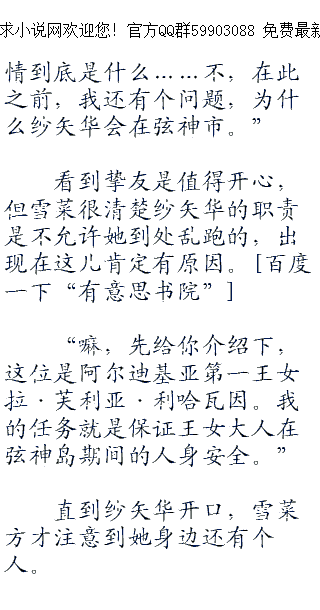 求小说网欢迎您！官方QQ群59903088 免费最新
情到底是什么……不，在此
之前，我还有个问题，为什
么纱矢华会在弦神市。”
看到挚友是值得开心，
但雪菜很清楚纱矢华的职责
是不允许她到处乱跑的，出
现在这儿肯定有原因。[百度
一下“有意思书院”]
“嘛，先给你介绍下，
这位是阿尔迪基亚第一王女
拉·芙利亚·利哈瓦因。我
的任务就是保证王女大人在
弦神岛期间的人身安全。”
直到纱矢华开口，雪菜
方才注意到她身边还有个
人。